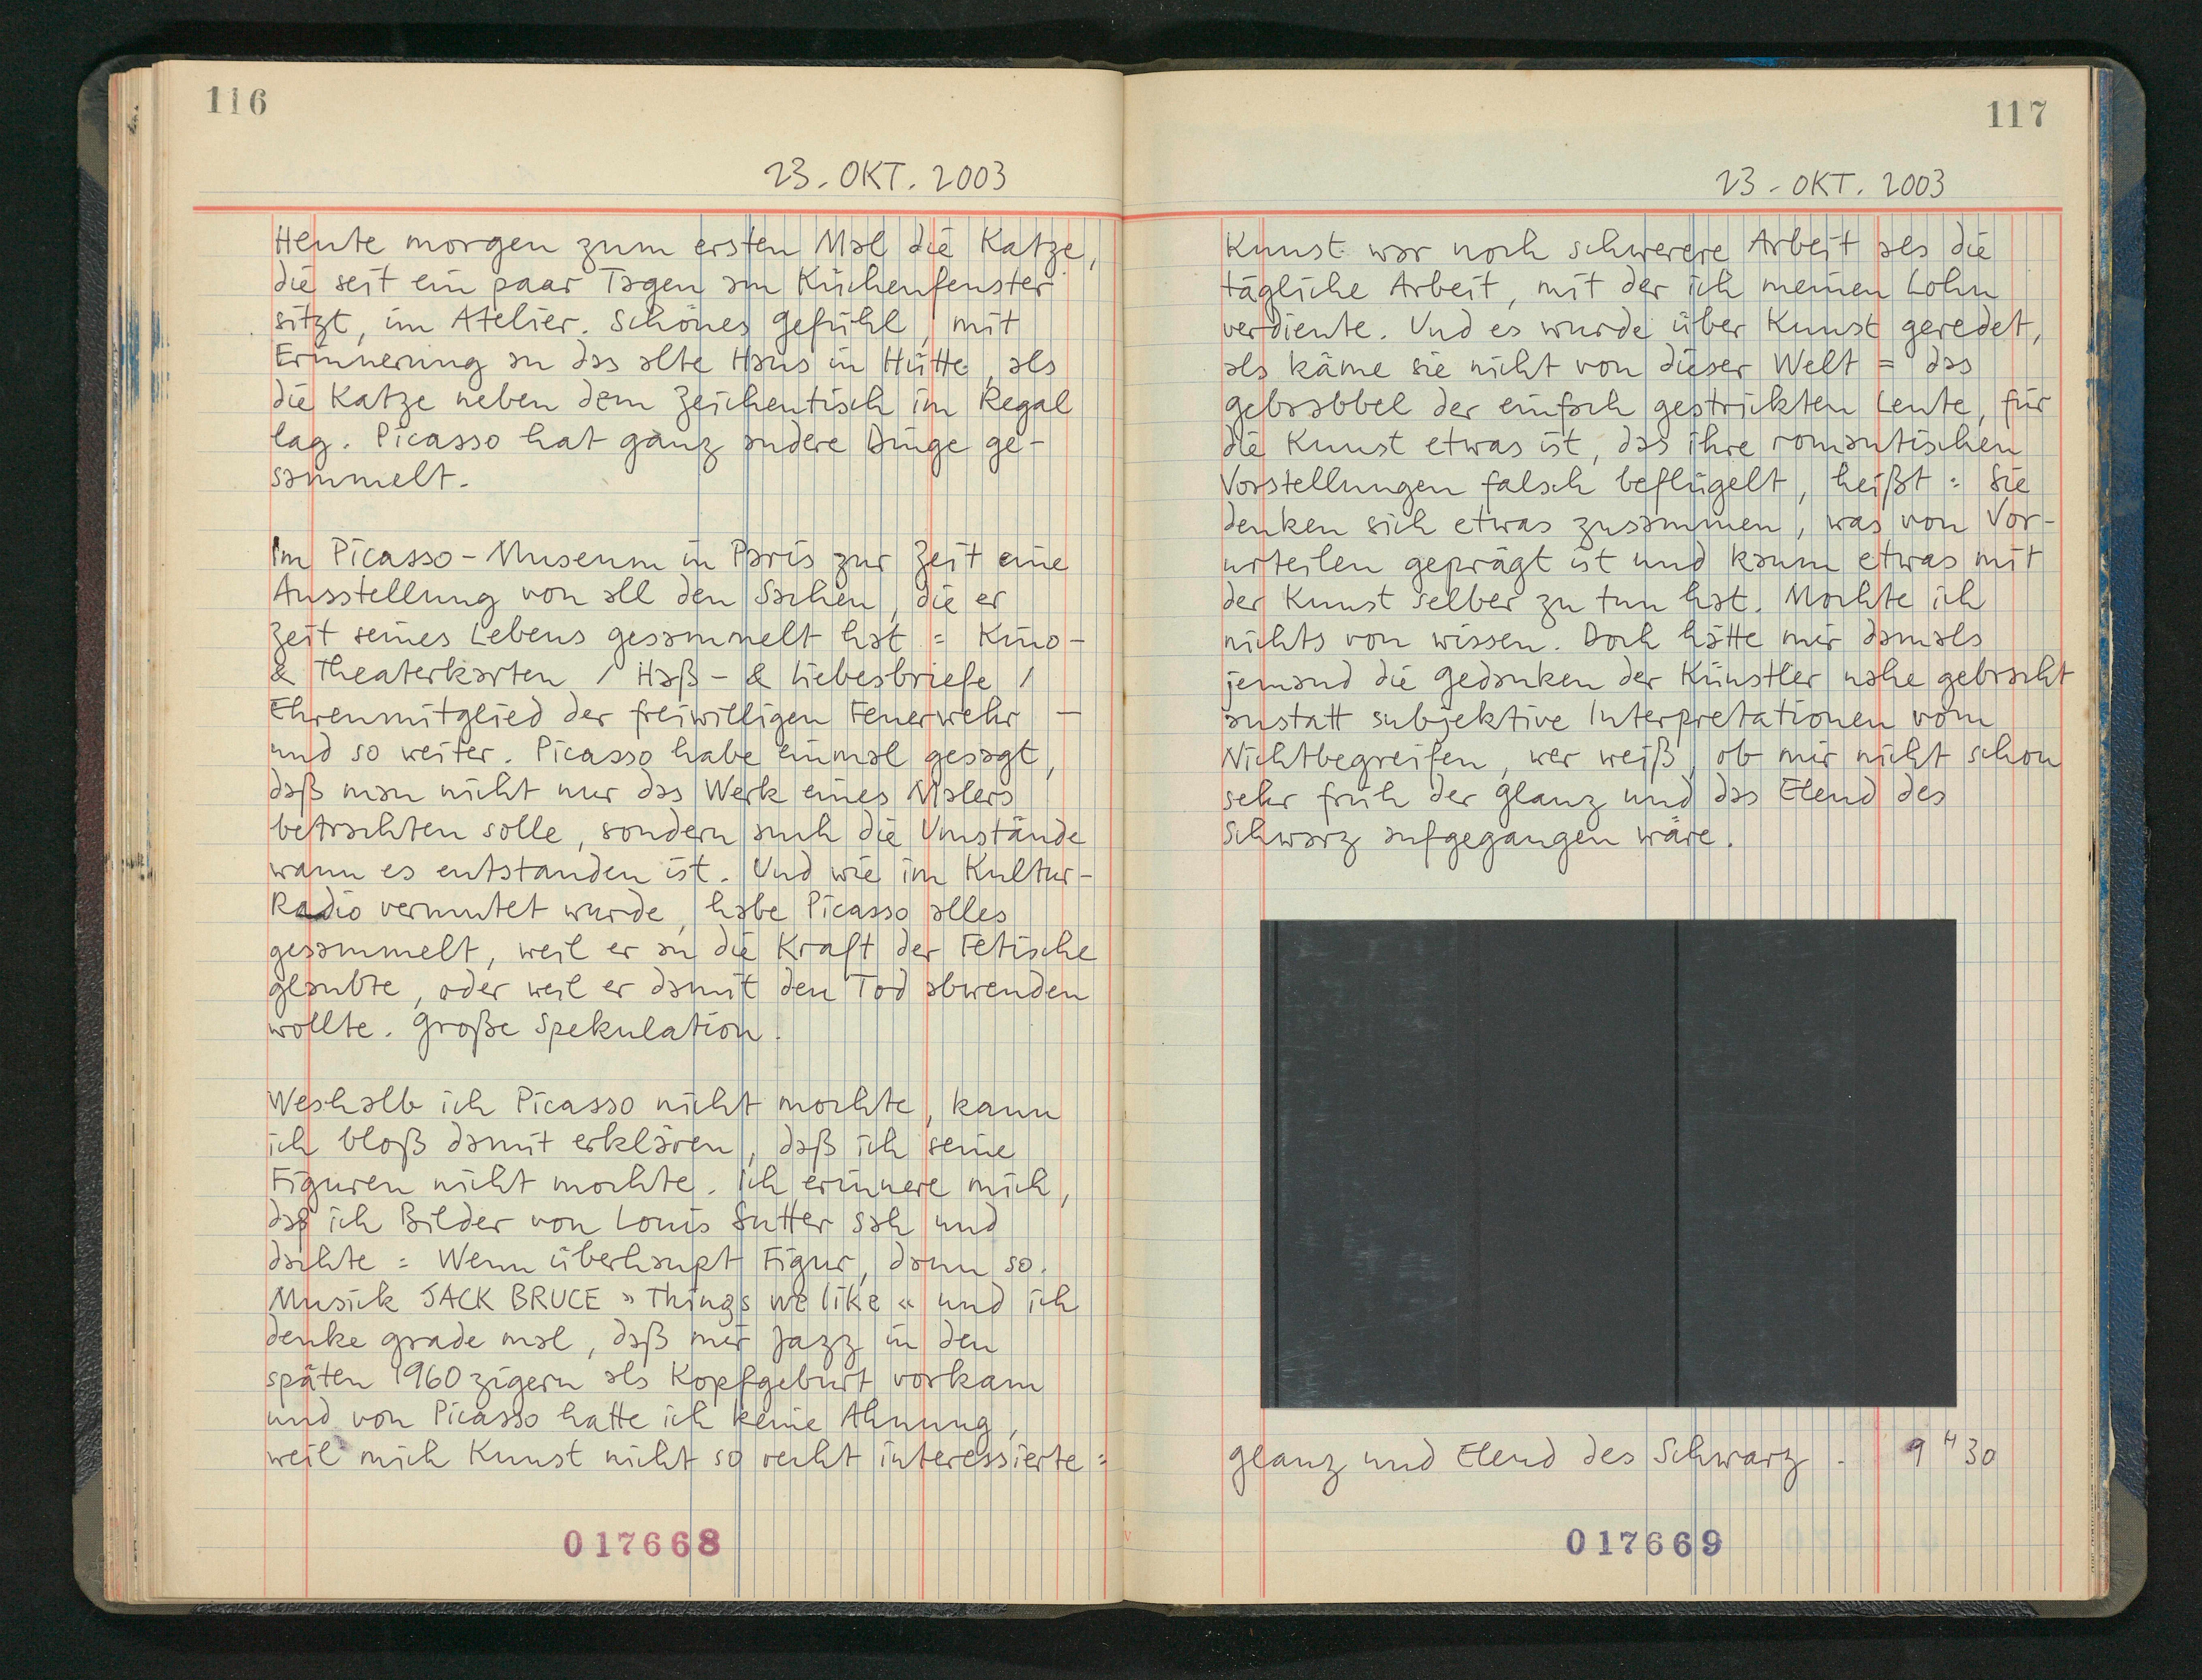 116
23. OKT. 2003
Heute morgen zum ersten Mal die Katze,
die seit ein paar Tagen am Küchenfenster
sitzt, im Atelier. Schönes Gefühl, mit
Erinnerung an das alte Haus in Hütte, als
die Katze neben dem Zeichentisch im Regal
lag. Picasso hat ganz andere Dinge ge-
sammelt.
Im Picasso-Museum in Paris zur Zeit eine
Ausstellung von all den Sachen, die er
Zeit seines Lebens gesammelt hat = Kino-
& Theaterkarten / Haß- & Liebesbriefe /
Ehrenmitglied der freiwilligen Feuerwehr —
und so weiter. Picasso habe einmal gesagt,
daß man nicht nur das Werk eines Malers
betrachten solle, sondern auch die Umstände
wann es entstanden ist. Und wie im Kultur-
Radio vermutet wurde, habe Picasso alles
gesammelt, weil er an die Kraft der Fetische
glaubte, oder weil er damit den Tod abwenden
wollte. Große Spekulation.
Weshalb ich Picasso nicht mochte, kann
ich bloß damit erklären, daß ich seine
Figuren nicht mochte. Ich erinnere mich,
daß ich Bilder von Louis Sutter sah und
dachte = Wenn überhaupt Figur, dann so.
Musick JACK BRUCE »Things we like« und ich
denke grade mal, daß mir Jazz in den
späten 1960zigern als Kopfgeburt vorkam
und von Picasso hatte ich keine Ahnung,
weil mich Kunst nicht so recht interessierte =
017668
117
23. OKT. 2003
Kunst war noch schwerere Arbeit als die
tägliche Arbeit, mit der ich meinen Lohn
verdiente. Und es wurde über Kunst geredet,
als käme sie nicht von dieser Welt = das
Gebrabbel der einfach gestrickten Leute, für
die Kunst etwas ist, das ihre romantischen
Vorstellungen falsch beflügelt, heißt = Sie
denken sich etwas zusammen, was von Vor-
urteilen geprägt ist und kaum etwas mit
der Kunst selber zu tun hat. Mochte ich
nichts von wissen. Doch hätte mir damals
jemand die Gedanken der Künstler nahe gebracht
anstatt subjektive Interpretationen vom
Nichtbegreifen, wer weiß, ob mir nicht schon
sehr früh der Glanz und das Elend des
Schwarz aufgegangen wäre.
Glanz und Elend des Schwarz. 9 H 30
017669